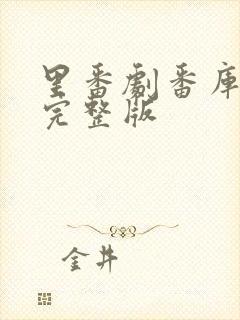 里番劇番库
完整版
金井